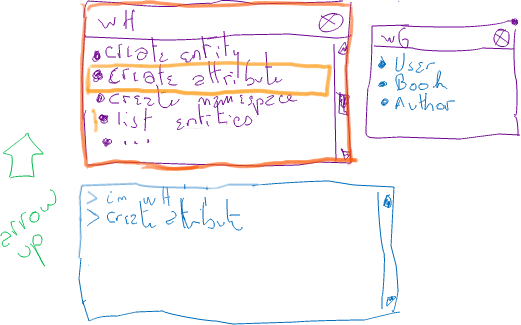 WH
create entity
create attribute
create namespace
list entities
...
WG
User
Book
Author
> im WH
> create attribute
arrow
up